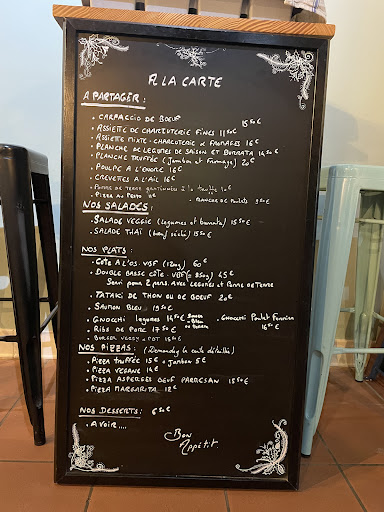 A LA CARTE
A PARTAGER :
. CARPACCIO DE BOEUF 15,50€
. ASSIETTE DE CHARCUTERIE FINES 11,50€
. ASSIETTE MIXTE CHARCUTERIE & FROMAGES 16€
. PLANCHE DE LEGUMES DE SAISON ET BURRATA 14,50€
. PLANCHE TRUFFÉE (Jambon et Fromage) 20€
. POULPE A L'ENCRE 16€
. CREVETTES A L'AIL 16€
. POMME DE TERRE à la truffe
. PIZZA AU PESTO 11€ . PLANCHE DE
NOS SALADES :
. SALADE VEGGIE (legumes et burrata) 15,50€
. SALADE THAÏ (boeuf séché) 15,50€
NOS PLATS :
. CÔTE A L'OS VBF (1,2kg) 60€
. DOUBLE BASSE CÔTE VBF (± 850g) 45€
Servi pour 2 pers. AVEC LEGUMES ET Pomme DE TERRE
. TATAKI DE THON OU DE BOEUF 20€
. SAUMON BLEU 19,50€
. GNOCCHI legumes 14,50€ . GNOCCHI Poulet Fermier
. RIBS DE PORC 17,50€ 16,50€
. BURGER VEGGY + POT 15,50€
NOS PIZZAS : (Demandez la carte détaillée)
. PIZZA TRUFFÉE 15€ + Jambon 5€
. PIZZA VEGANE 14€
. PIZZA ASPERGES OEUF PARMESAN 15,50€
. PIZZA MARGARITA 12€
NOS DESSERTS : 6,50€
. A VOIR....
Bon
Appétit.